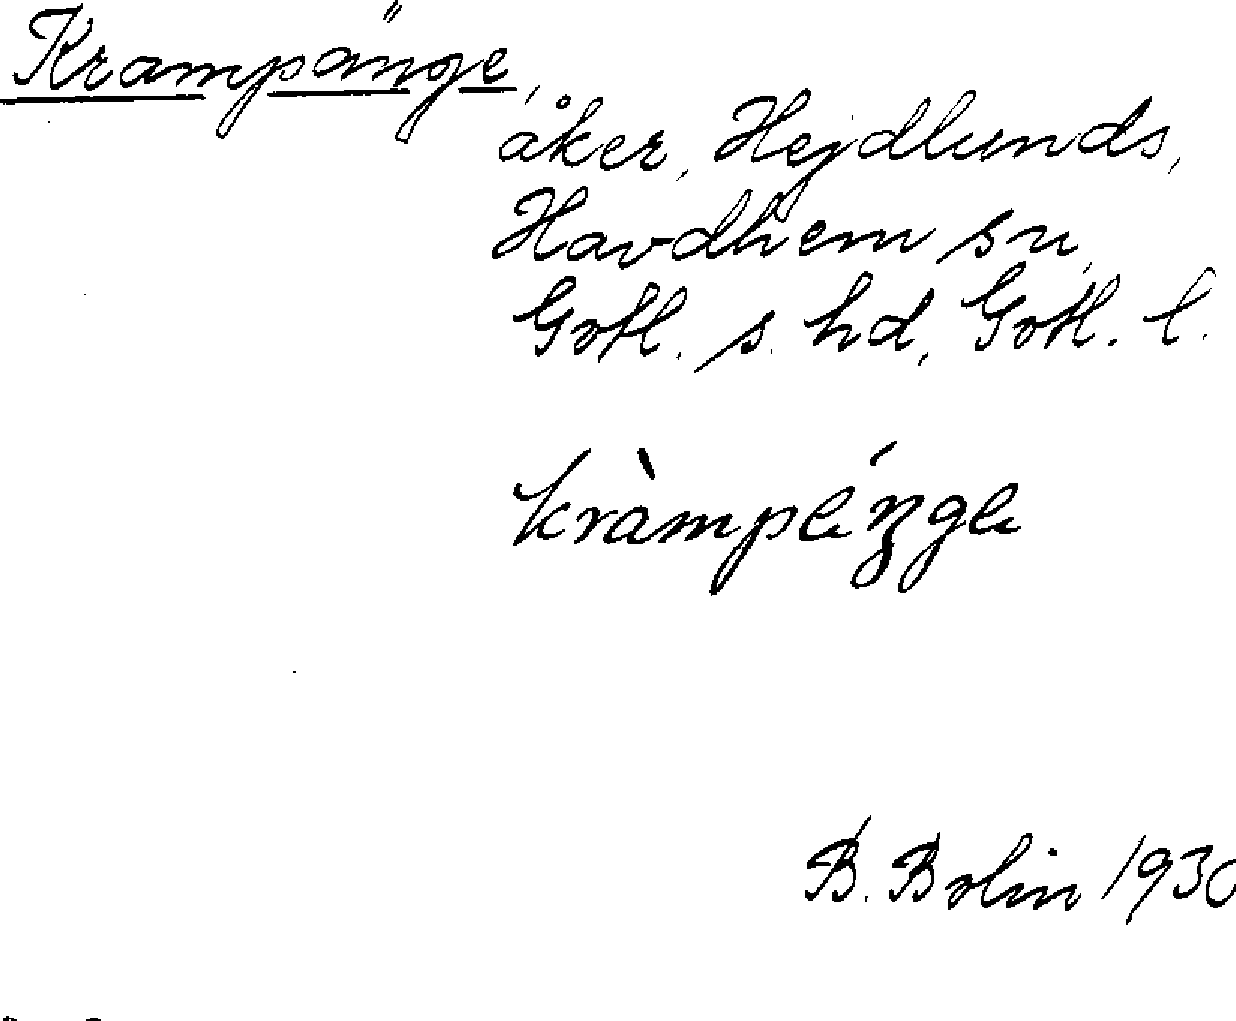 Krampänge,
åker, Hejdlunds,
Havdhem sn,
Gotl. s. hd, Gotl. l.
kràmpéŋge
B. Bolin 1930